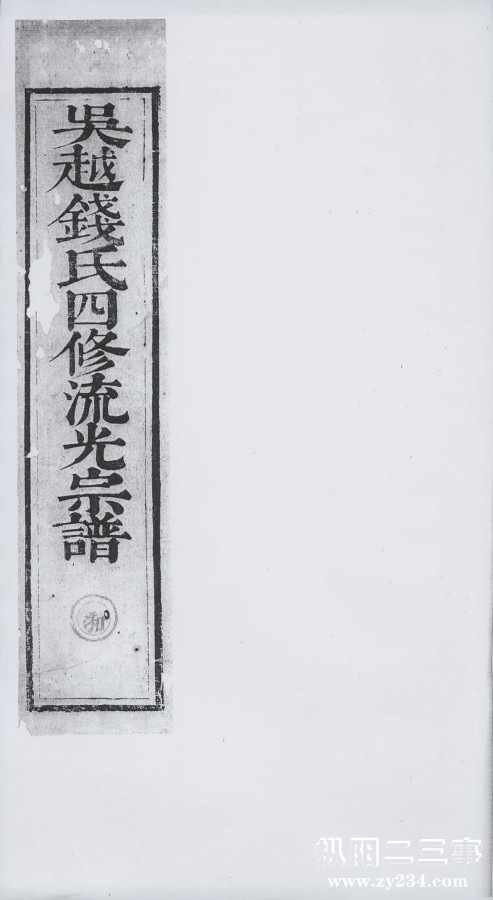 吳越錢氏四修流光宗譜
和
枞阳二三事
www.zy234.com